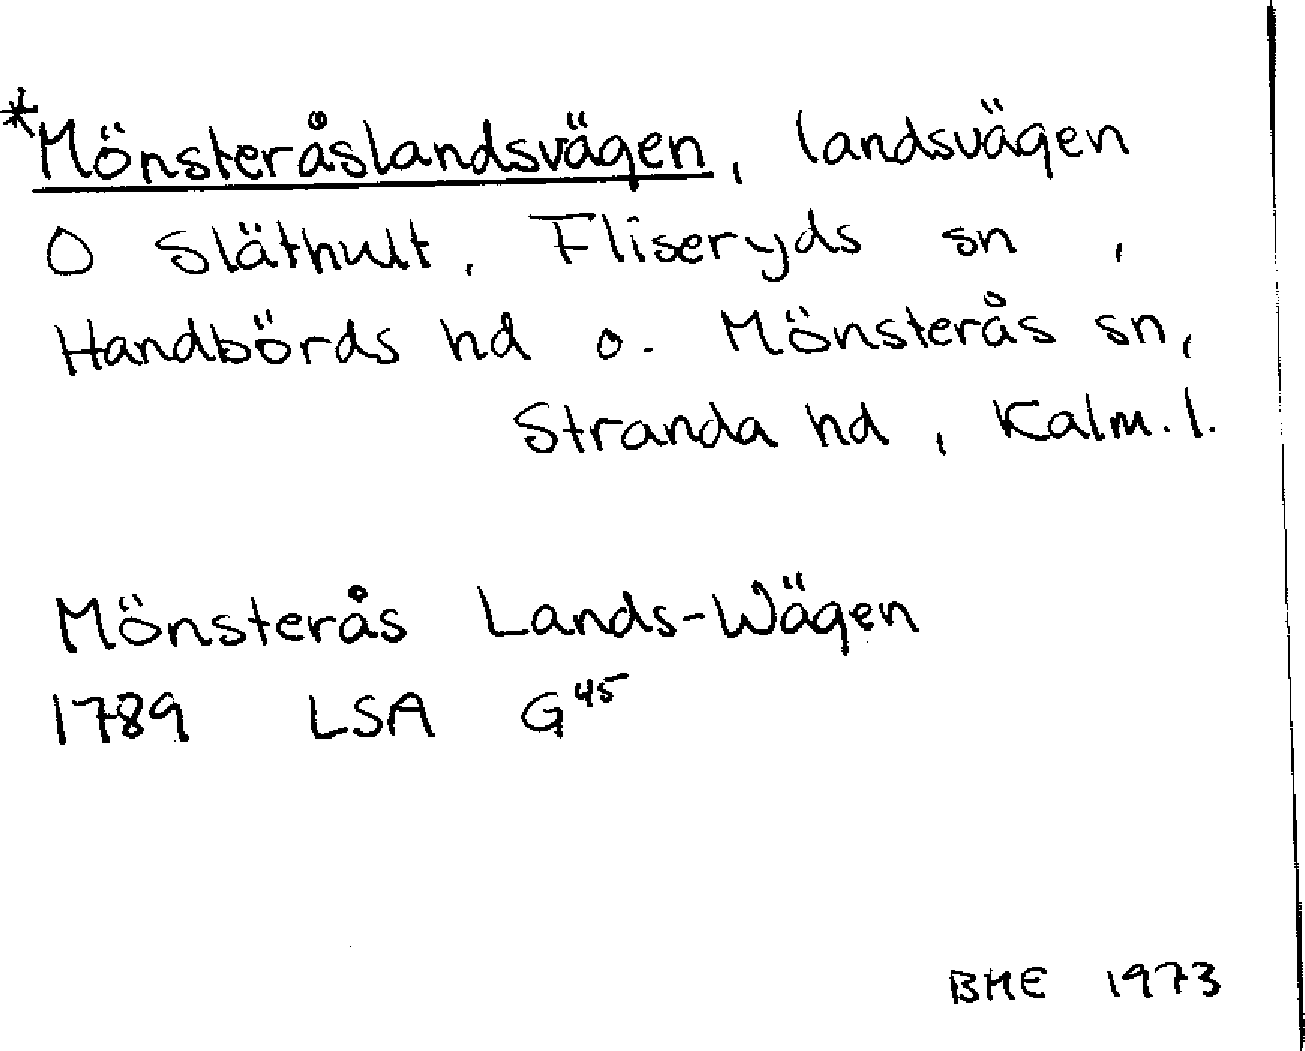 *Mönsteråslandsvägen, landsvägen
O Släthult, Fliseryds sn,
Handbörds hd o. Mönsterås sn,
Stranda hd, Kalm. l.
Mönsterås Lands-Wägen
1789 LSA G45
BME 1973